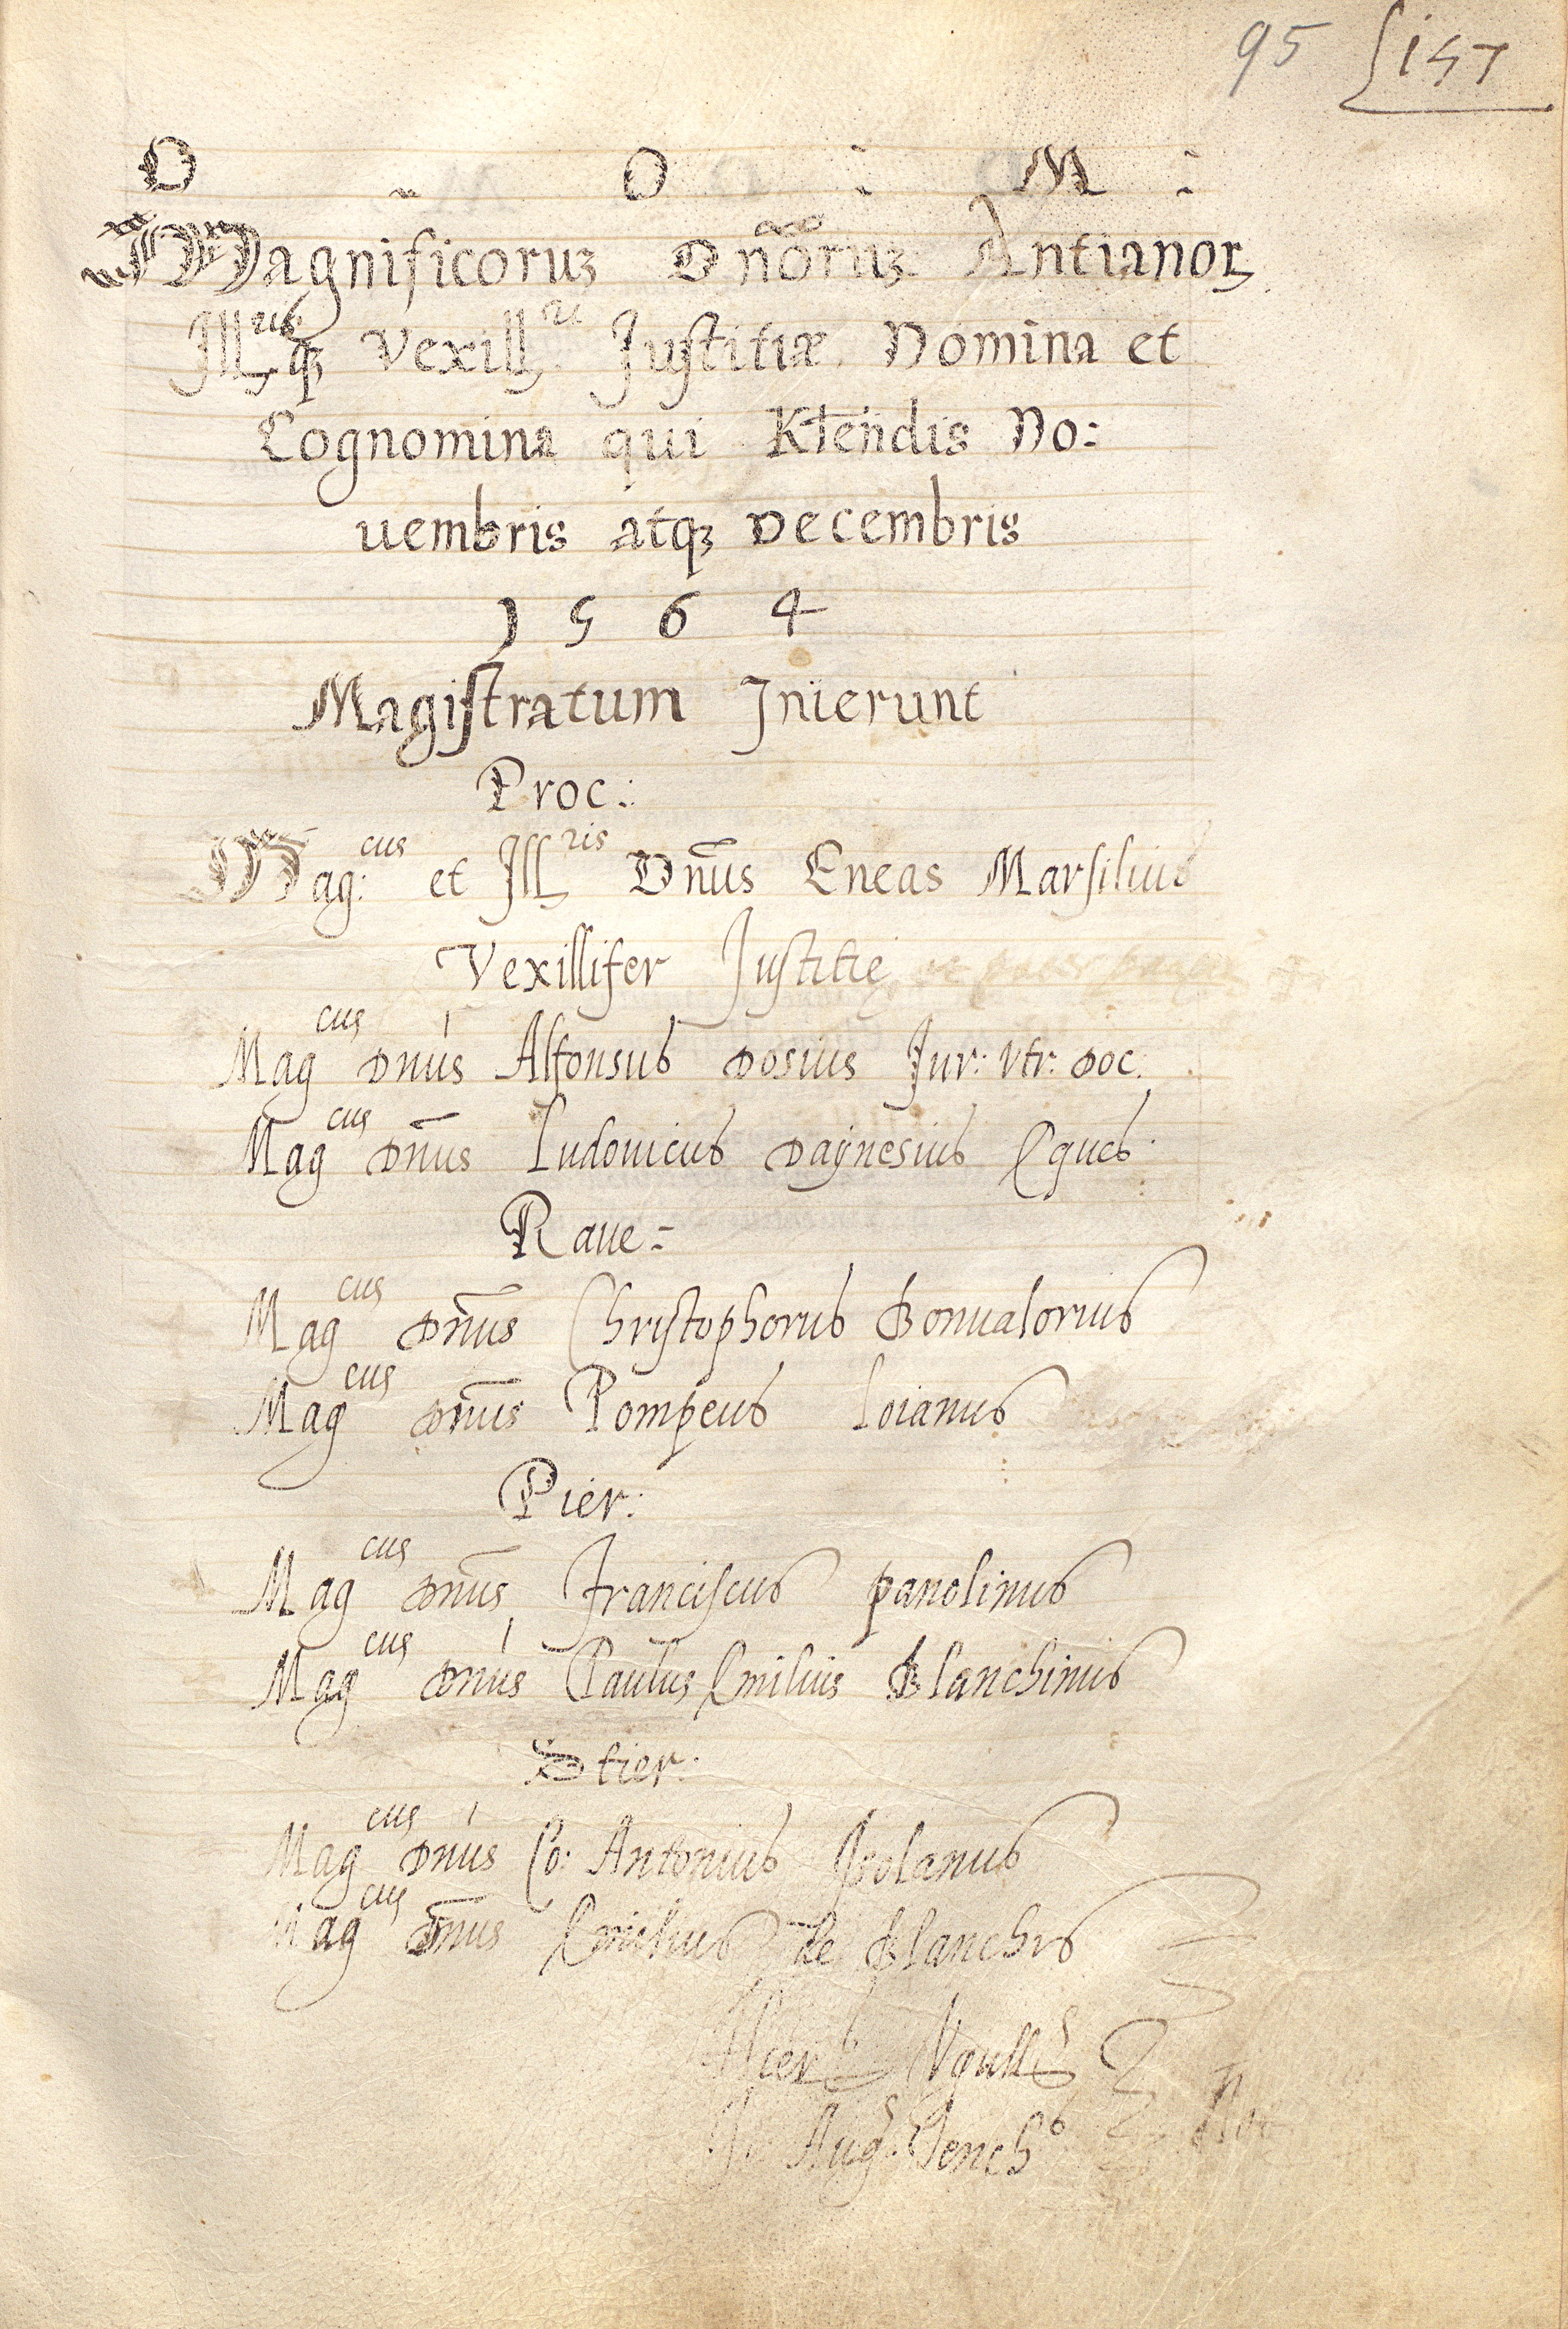 95 157
D O : M :
Magnificoruꝫ Dnōruꝫ Antianoꝝ
Ill.risqꝫ Vexill.ri Justitiæ Nomina et
Cognomina qui Kłendis No:
uembris atqꝫ Decembris
1564
Magistratum Inierunt
Proc.:
Mag:cus et Ill.ris Dn̄us Eneas Marsilius
Vexillifer Justitię
Magcus Dnus Alfonsus Dosius Jur: Vtr: Doc:
Magcus Dn̄us Ludouicus Daÿnesius Eques.
Raue:
Magcus Dn̄us Christophorus Bonualorius
Magcus Dn̄us Pompeus Loianus
Pier:
Magcus Dn̄us Franciscus panolinus
Magcus Dnus Paulus Emilius Blanchinus
Stier:
Magcus Dnus Co: Antonius Isolanus
Magcus Dn̄us Emilius de Blanchis
Aug.s
Not